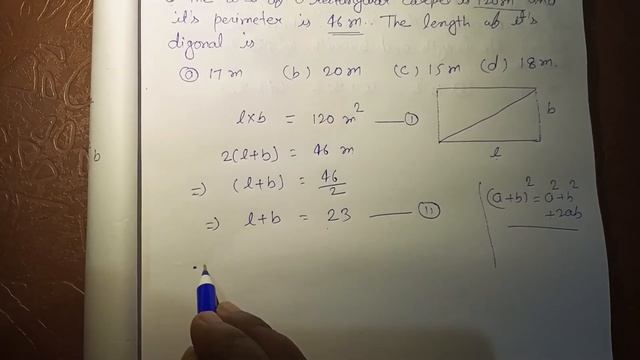 rectangular carpet is 120 m² and
it's perimeter is 46 m. The length of it's
digonal is
(a) 17 m (b) 20 m (c) 15 m (d) 18 m.
l×b = 120 m² —— (I)
b
2(l+b) = 46 m
l
=> (l+b) = 46/2
(a+b)² = a²+b²
+2ab
=> l+b = 23 —— (II)
b